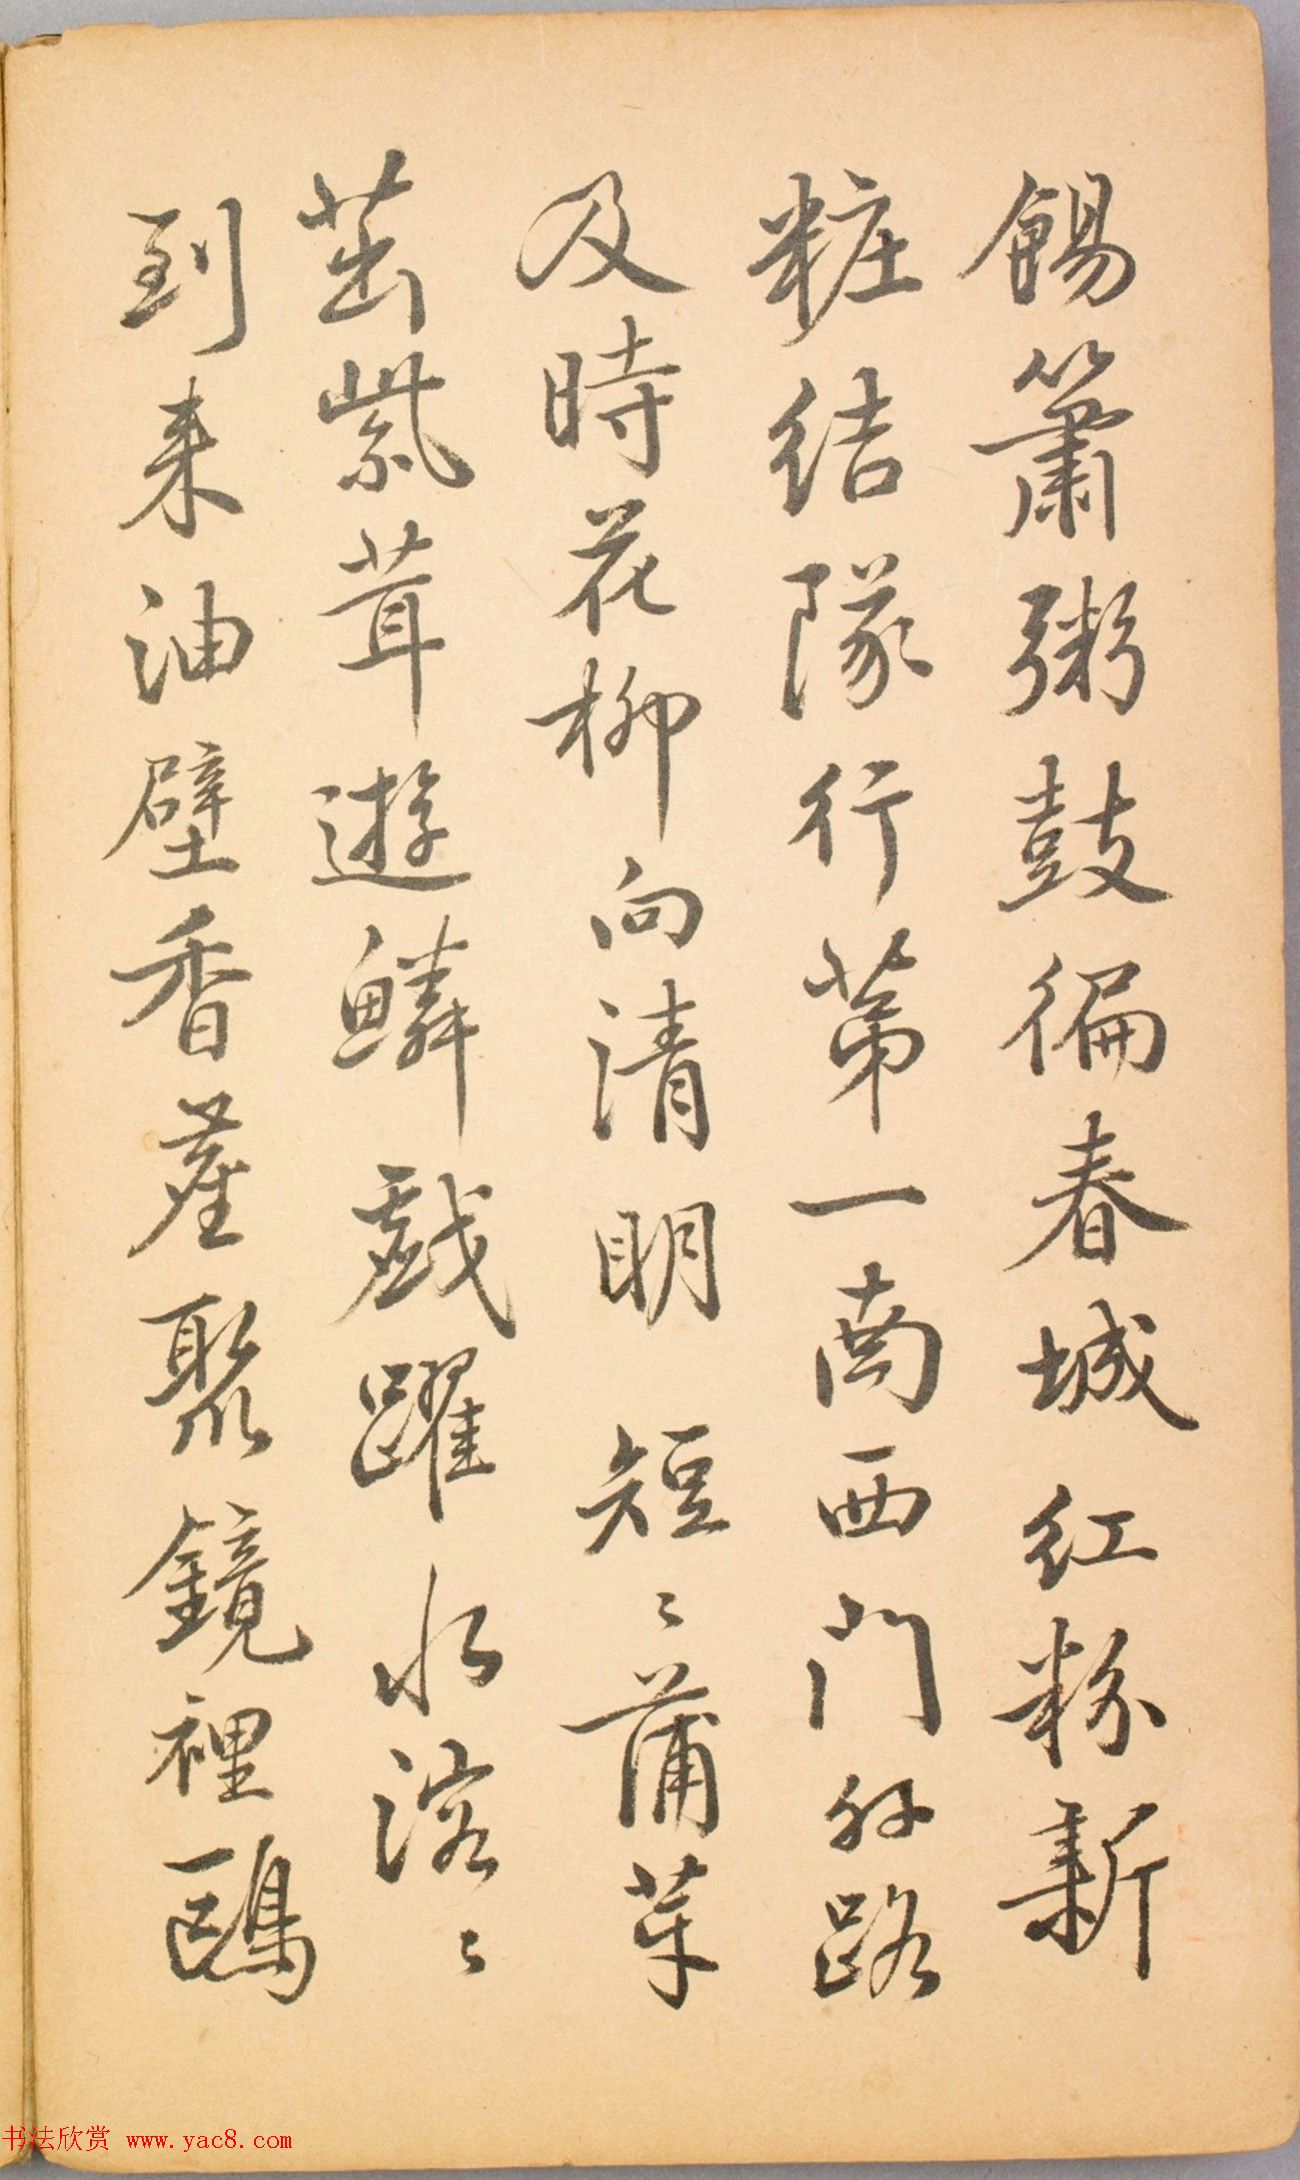 餳簫粥鼓徧春城紅粉新
粧結隊行第一南西門外路
及時花柳向清明 短〻蒲芽
茁紫茸遊鱗戲躍水溶〻
到来油壁香塵聚鏡裡鷗
书法欣赏 www.yac8.com